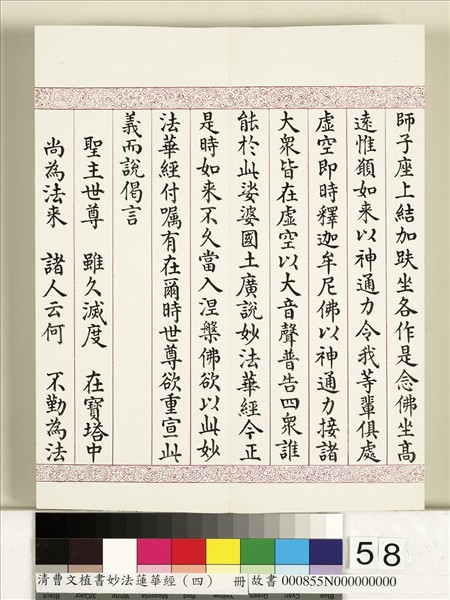 師子座上結加趺坐各作是念佛坐高
遠惟願如来以神通力令我等輩俱處
虛空即時釋迦牟尼佛以神通力接諸
大衆皆在虛空以大音聲普告四衆誰
能於此娑婆國土廣説妙法華經今正
是時如来不久當入涅槃佛欲以此妙
法華經付囑有在爾時世尊欲重宣此
義而説偈言
聖主世尊 雖久滅度 在寶塔中
尚為法来 諸人云何 不勤為法
58
清曹文植書妙法蓮華經(四) 冊 故書 000855N000000000